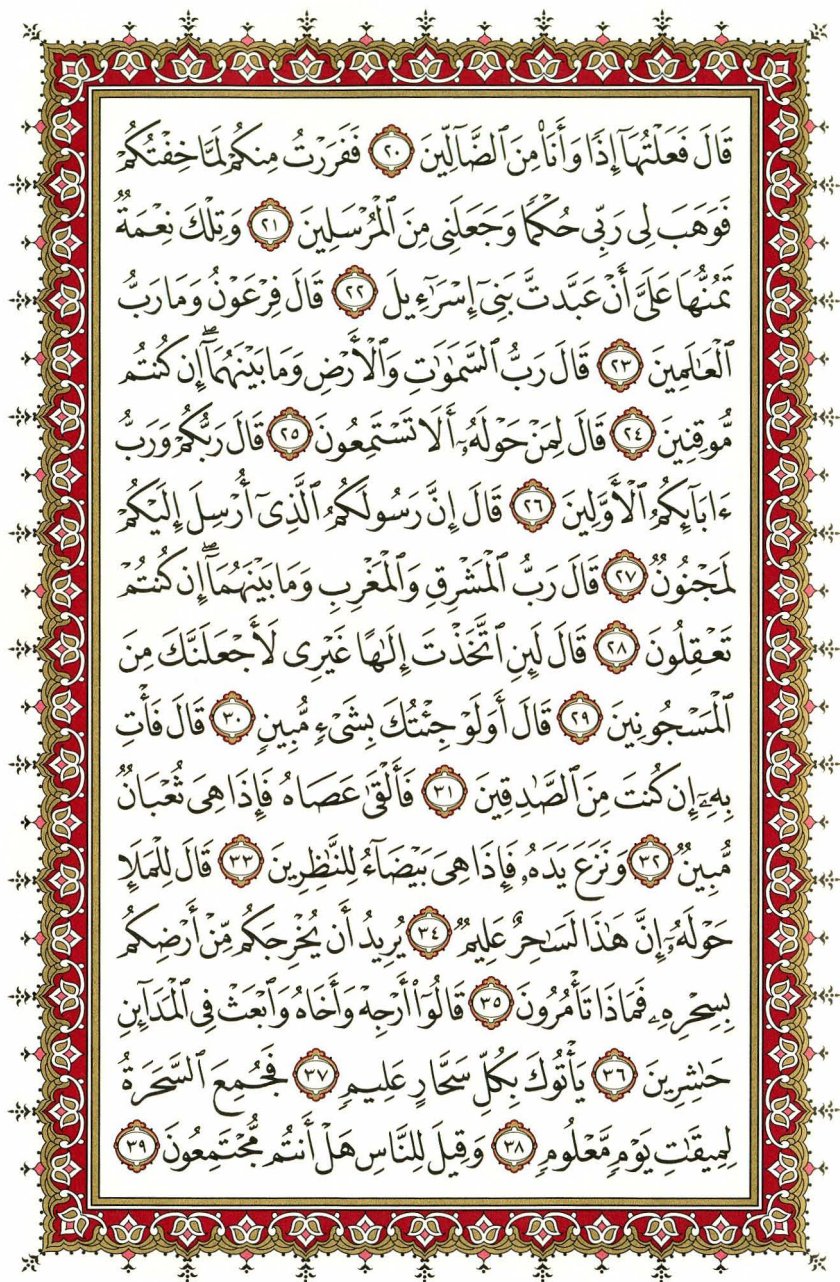 قَالَ فَعَلْتُهَآ إِذًا وَأَنَا۠ مِنَ ٱلضَّآلِّينَ ٢٠ فَفَرَرْتُ مِنكُمْ لَمَّا خِفْتُكُمْ
فَوَهَبَ لِى رَبِّى حُكْمًا وَجَعَلَنِى مِنَ ٱلْمُرْسَلِينَ ٢١ وَتِلْكَ نِعْمَةٌ
تَمُنُّهَا عَلَىَّ أَنْ عَبَّدتَّ بَنِىٓ إِسْرَٰٓءِيلَ ٢٢ قَالَ فِرْعَوْنُ وَمَا رَبُّ
ٱلْعَٰلَمِينَ ٢٣ قَالَ رَبُّ ٱلسَّمَٰوَٰتِ وَٱلْأَرْضِ وَمَا بَيْنَهُمَآ ۖ إِن كُنتُم
مُّوقِنِينَ ٢٤ قَالَ لِمَنْ حَوْلَهُۥٓ أَلَا تَسْتَمِعُونَ ٢٥ قَالَ رَبُّكُمْ وَرَبُّ
ءَابَآئِكُمُ ٱلْأَوَّلِينَ ٢٦ قَالَ إِنَّ رَسُولَكُمُ ٱلَّذِىٓ أُرْسِلَ إِلَيْكُمْ
لَمَجْنُونٌ ٢٧ قَالَ رَبُّ ٱلْمَشْرِقِ وَٱلْمَغْرِبِ وَمَا بَيْنَهُمَآ ۖ إِن كُنتُمْ
تَعْقِلُونَ ٢٨ قَالَ لَئِنِ ٱتَّخَذْتَ إِلَٰهًا غَيْرِى لَأَجْعَلَنَّكَ مِنَ
ٱلْمَسْجُونِينَ ٢٩ قَالَ أَوَلَوْ جِئْتُكَ بِشَىْءٍ مُّبِينٍ ٣٠ قَالَ فَأْتِ
بِهِۦٓ إِن كُنتَ مِنَ ٱلصَّٰدِقِينَ ٣١ فَأَلْقَىٰ عَصَاهُ فَإِذَا هِىَ ثُعْبَانٌ
مُّبِينٌ ٣٢ وَنَزَعَ يَدَهُۥ فَإِذَا هِىَ بَيْضَآءُ لِلنَّٰظِرِينَ ٣٣ قَالَ لِلْمَلَإِ
حَوْلَهُۥٓ إِنَّ هَٰذَا لَسَٰحِرٌ عَلِيمٌ ٣٤ يُرِيدُ أَن يُخْرِجَكُم مِّنْ أَرْضِكُم
بِسِحْرِهِۦ فَمَاذَا تَأْمُرُونَ ٣٥ قَالُوٓا۟ أَرْجِهْ وَأَخَاهُ وَٱبْعَثْ فِى ٱلْمَدَآئِنِ
حَٰشِرِينَ ٣٦ يَأْتُوكَ بِكُلِّ سَحَّارٍ عَلِيمٍ ٣٧ فَجُمِعَ ٱلسَّحَرَةُ
لِمِيقَٰتِ يَوْمٍ مَّعْلُومٍ ٣٨ وَقِيلَ لِلنَّاسِ هَلْ أَنتُم مُّجْتَمِعُونَ ٣٩